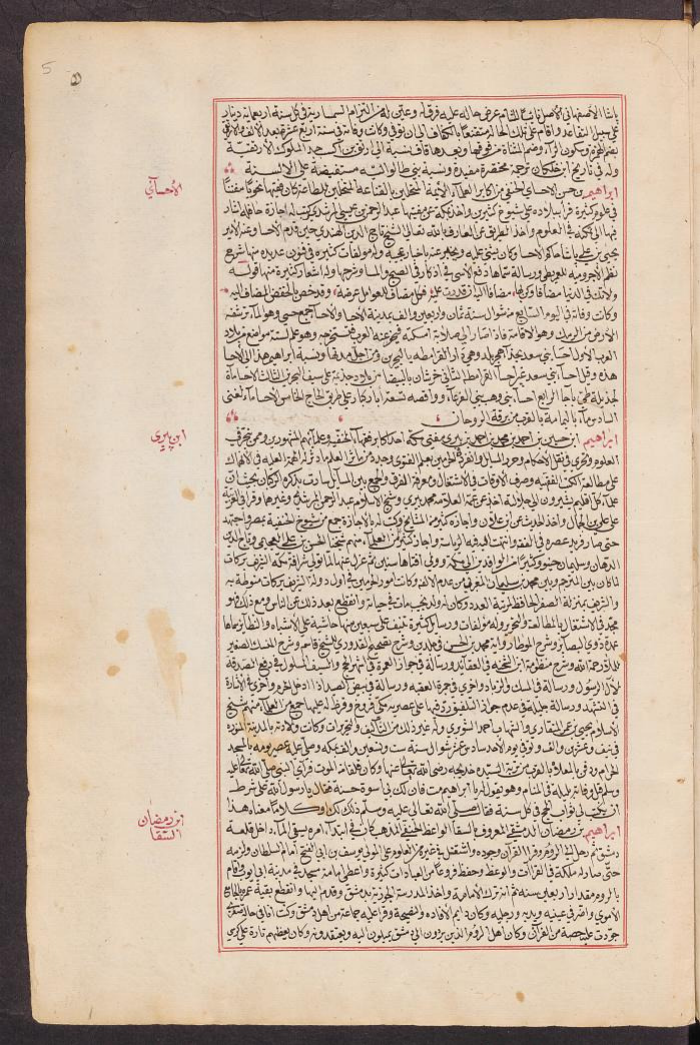 5
باشا الاصفهاني الاصل نائب الشام عرض حاله عليه فرق له وعين له من التزام السمارية في كل سنة اربعمائة دينار
على سبيل التقاعد واقام على تلك الحالة مقتنعا بالكفاف الى ان توفي وكانت وفاته في سنة اربع عشر بعد الالف والارتقي
بضم الهمزة وسكون الراء وضم المثناة من فوقها وبعدها قاف نسبة الى ارتق بن اكسب جد الملوك الارتقية
وله في تاريخ ابن خلكان ترجمة مختصرة مفيدة ونسبة بني طالو اليه مستفيضة على الالسنة
الاحسائي
ابراهيم بن حسن الاحسائي الحنفي من اكابر العلماء الائمة المتحلين بالقناعة المتخلين للطاعة كان فقيها نحويا متفننا
في علوم كثيرة قرأ ببلاده على شيوخ كثيرين واخذ بمكة عن مفتيها عبد الرحمن بن عيسى المرشدي وكتب له اجازة حافلة اشار
فيها الى تمكنه في العلوم واخذ الطريق عن العارف بالله تعالى الشيخ تاج الدين الهندي حين قدم الاحسا وعنه الامير
يحيى بن علي باشا حاكم الاحسا وكان يثني عليه ويخبر عنه باخبار عجيبة وله مؤلفات كثيرة في فنون عديدة منها شرح
نظم الاجرومية للعمريطي ورسالة سماها دفع الاسى في اذكار الصبح والمسا وشرحها وله اشعار كثيرة منها قوله
ولا تك في الدنيا مضافا وكن بها مضافا اليه ان قدرت عليه فكل مضاف للعوامل عرضة وقد خص بالخفض المضاف اليه
وكانت وفاته في اليوم السابع من شوال سنة ثمان واربعين والف بمدينة الاحسا والاحسا جمع حسى وهو الماء ترشفه
الارض من الرمل
العرب الاول احساء بني سعد بحذاء هجر بلد وهي دار القرامطة بالبحرين ومن اجل مدنها ونسبة ابراهيم هذا الى الاحسا
هذه وقيل احساء بني سعد غير احساء القرامطة الثاني
السادس ماء باليمامة بالقرب من برقة الروحان
ابن بيري
ابراهيم ابن حسين بن احمد بن محمد بن احمد بن بيري مفتي مكة احد اكابر فقهاء الحنفية وعلمائهم المشهورين ومن تبحر في
العلوم وتحرى في نقل الاحكام وحرر المسائل وانفرد في الحرمين بعلم الفتوى وجدد من مآثر العلم ما دثر له الهمة العلية في الانهماك
على مطالعة الكتب الفقهية وصرف الاوقات في الاشتغال ومعرفة الفرق والجمع بين المسائل سارت بذكره الركبان بحيث ان
علماء كل اقليم يشيرون الى جلالته اخذ عن عمه العلامة محمد بن بيري وشيخ الاسلام عبد الرحمن المرشدي وغيرهما وقرأ في العربية
على علي بن الجمال واخذ الحديث عن ابن علان واجازه كثير من المشايخ وكتب له بالاجازة جمع من شيوخ الحنفية بمصر واجتهد
حتى صار فريد عصره في الفقه وانتهت اليه فيه الرياسة واجاز كثيرا من العلماء منهم شيخنا الحسن بن علي العجيمي وتاج الدين
الدهان وسليمان حينو وكثيرا من الوافدين الى مكة وولي افتاءها سنين ثم عزل عنها لما تولى شرافة مكة الشريف بركات
لما كان بين المترجم وبين محمد بن سليمان المغربي من عدم الالفة وكانت امور الحرمين في اول دولة الشريف بركات منوطة به
والشريف بمنزلة الصفر الحافظ لمرتبة العدد وكان له ولد نجيب مات في حياته وانقطع بعد ذلك عن الناس ومع ذلك فهو
مجد في الاشتغال بالمطالعة والتحرير وله مؤلفات ورسائل كثيرة تنيف على سبعين منها حاشية على الاشباه والنظائر سماها
عمدة ذوي البصائر وشرح الموطا رواية محمد بن الحسن في مجلدين وشرح تصحيح القدوري للشيخ قاسم وشرح المنسك الصغير
للملا رحمة الله وشرح منظومة ابن الشحنة في العقائد ورسالة في جواز العمرة في اشهر الحج والسيف المسلول في دفع الصدقة
لآل الرسول ورسالة في المسك والزباد واخرى في جمرة العقبة ورسالة في بيض الصيد اذا ادخل الحرم واخرى في الاشارة
في التشهد ورسالة جليلة في عدم جواز التلفيق رد فيها على عصريه مكي فروخ وقرظ له عليها جمع من العلماء منهم شيخ
الاسلام يحيى بن عمر المنقاري والشهاب احمد الشوبري وله غير ذلك من التآليف والتحريرات وكانت ولادته بالمدينة المنورة
في نيف وعشرين والف وتوفي يوم الاحد سادس عشر شوال سنة ست وتسعين والف بمكة وصلى عليه عصر يومه بالمسجد
الحرام ودفن بالمعلاة بالقرب من تربة السيدة خديجة رضي الله تعالى عنها وكان قلقا من الموت فرأى النبي صلى الله تعالى عليه
وسلم قبل وفاته بليلة في المنام وهو يقول له يا ابراهيم مت فان لك بي اسوة حسنة فقال يا رسول الله على شرط
ان يكتب لي ثواب الحج في كل سنة فقال صلى الله تعالى عليه وسلم ذلك لك او كلاما معناه هذا
ابن رمضان السقا
ابراهيم بن رمضان الدمشقي المعروف بالسقا الواعظ الحنفي المذهب كان في ابتداء امره يسقي الماء داخل قلعة
دمشق ثم رحل الى الروم وقرأ القرآن وجوده واشتغل في غيره من العلوم على المولى يوسف بن ابي الفتح امام السلطان ولزمه
حتى صار له ملكة في القراآت والوعظ وحفظ فروعا من العبادات كثيرة واعطي امامة مسجد في مدينة ابي ايوب واقام
بالروم مقدار اربعين سنة ثم انه ترك الامامة واخذ المدرسة الجوزية بدمشق وقدم اليها وانقطع بقية عمره بالجامع
الاموي واضر في عينيه ويديه ورجليه وكان دائم الافادة والنصيحة وقرأ عليه جماعة من اهل دمشق وكنت انا في حالة صغري
جودت عليه حصة من القرآن وكان اهل الروم الذين يردون الى دمشق يميلون اليه ويعتقدونه وكان يعظهم تارة على كرسي